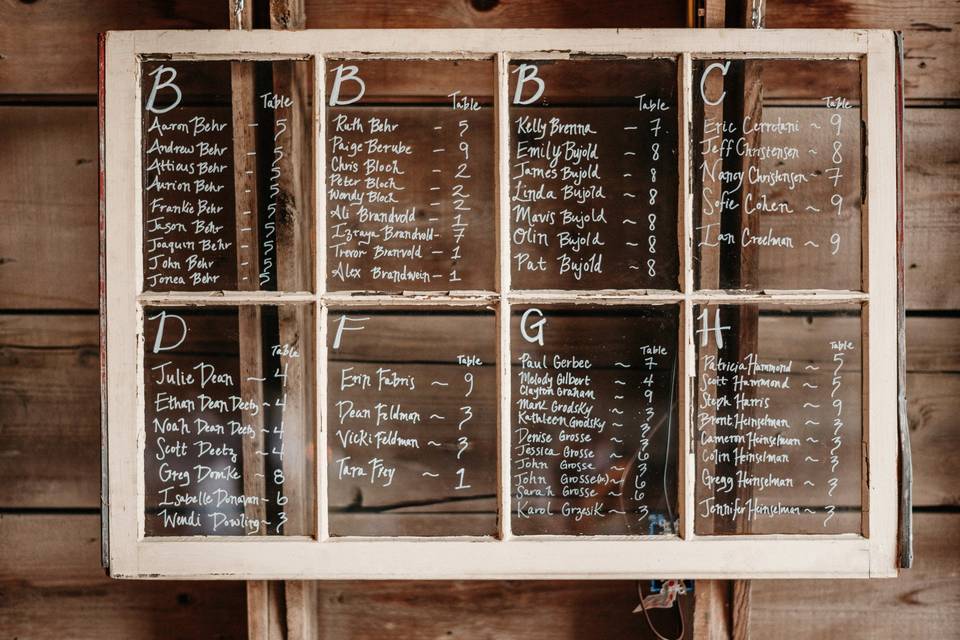 B
Table
Aaron Behr - 5
Andrew Behr - 5
Atticus Behr - 5
Aurion Behr - 5
Frankie Behr - 5
Jason Behr - 5
Joaquin Behr - 5
John Behr - 5
Jonea Behr - 5
B
Table
Ruth Behr - 5
Paige Berube - 9
Chris Bloch - 2
Peter Bloch - 2
Wendy Bloch - 2
Ali Brandvold - 1
Brandvold - 7
Trevor Branvold - 1
Alex Brandwein - 1
B
Table
Kelly Brenna - 7
Emily Bujold ~ 8
James Bujold ~ 8
Linda Bujold ~ 8
Mavis Bujold ~ 8
Olin Bujold ~ 8
Pat Bujold ~ 8
C
Table
Eric Cerretani ~ 9
Jeff Christensen ~ 8
Nancy Christensen ~ 7
Sofie Cohen ~ 9
Ian Creelman ~ 9
D
Table
Julie Dean ~ 4
Ethan Dean Deetz ~ 4
Noah Dean Deetz ~ 4
Scott Deetz ~ 4
Greg Domke ~ 8
Isabelle Donovan ~ 6
Wendi Dowling ~ 3
F
Table
Erin Fabris ~ 9
Dean Feldman ~ 3
Vicki Feldman ~ 3
Tara Frey ~ 1
G
Table
Paul Gerbec ~ 7
Melody Gilbert ~ 4
Clayton Graham ~ 9
Mark Grodsky ~ 3
Kathleen Grodsky ~ 3
Denise Grosse ~
Jessica Grosse ~ 6
John Grosse ~
John Grosse ~ 6
Sarah Grosse ~ 6
Karol Grzesik ~ 3
H
Table
Patricia Hammond ~ 5
Scott Hammond ~ 5
Steph Harris ~ 9
Brent Heinselman ~ 3
Cameron Heinselman ~ 3
Colin Heinselman ~ 3
Gregg Heinselman ~ 3
Jennifer Heinselman ~ 3